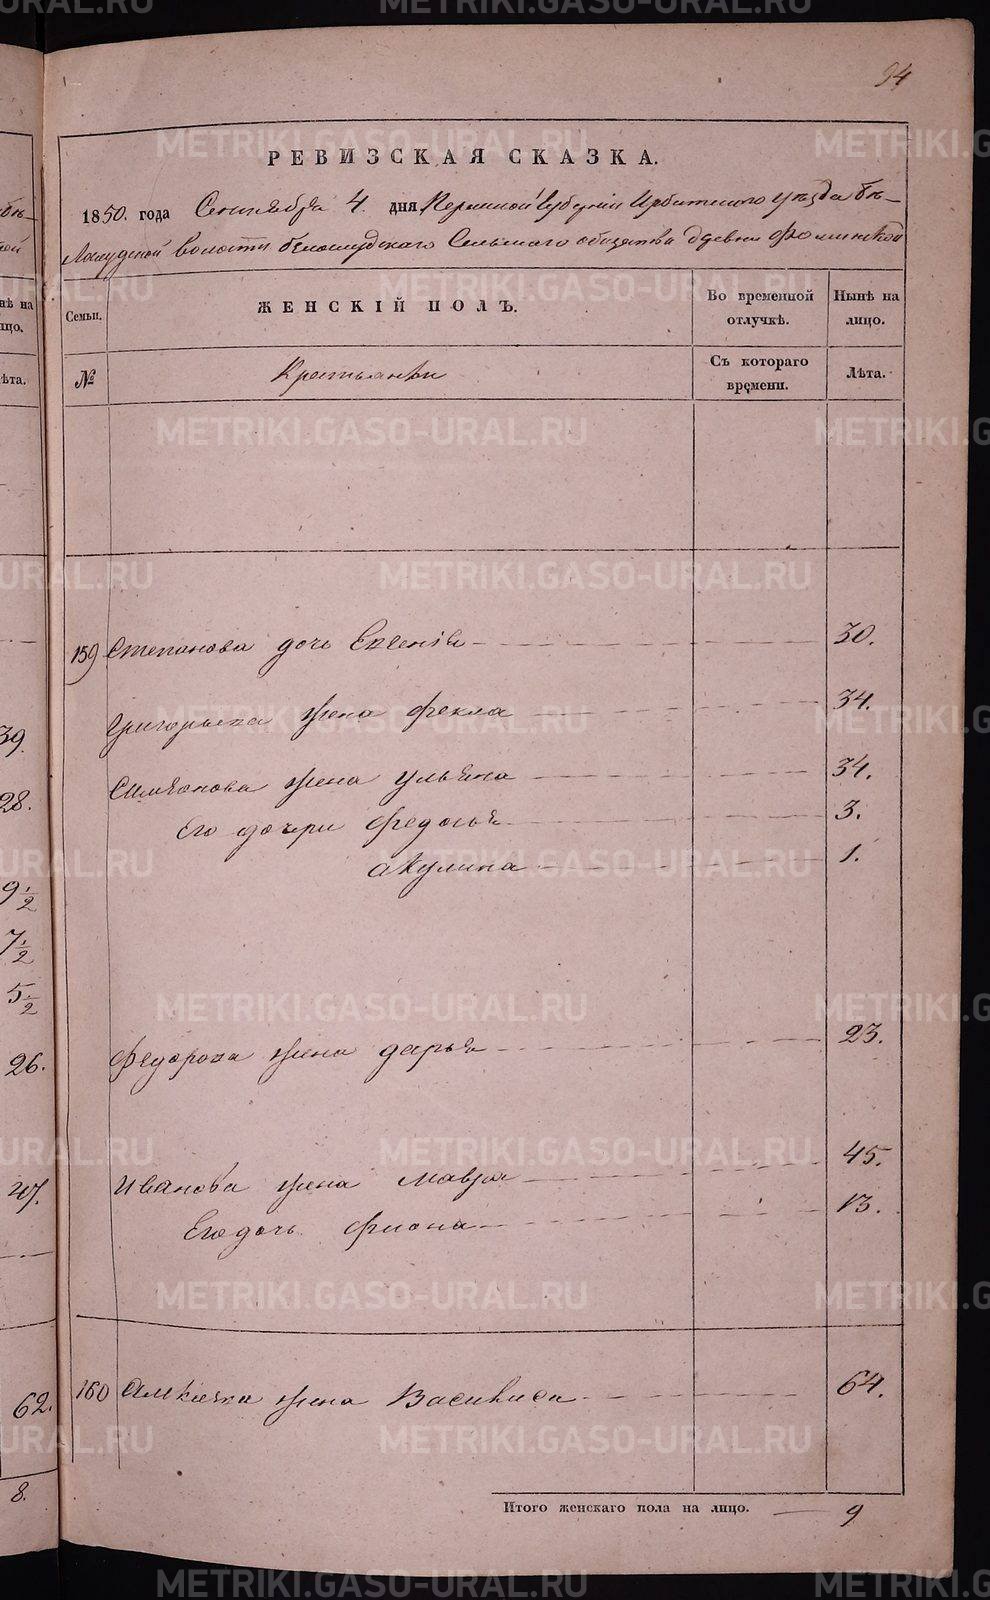 94
РЕВИЗСКАЯ СКАЗКА.
1850. года Сентября 4 дня Пермской Губернии Ирбитскаго уѣзда Бѣ-
лослудской волости Бѣлослудскаго Сельскаго общества деревни Фоминской
Семьи.
ЖЕНСКІЙ ПОЛЪ.
Во временной отлучкѣ.
Нынѣ на лицо.
№
Крестьянки
Съ котораго времени.
Лѣта.
159 Степанова дочь Евгенія 30.
Григорьева жена Фекла 34.
Симіонова жена Ульяна 34.
Его дочери Федосья 3.
Акулина 1.
Федорова жена Дарья 23.
Иванова жена Мавра 45.
Его дочь Фиона 13.
160 жена Василиса 64.
Итого женскаго пола на лицо. 9
нѣ на
ицо.
ѣта.
39.
28.
9 1/2
7 1/2
5 1/2
26.
47.
62.
8.
METRIKI.GASO-URAL.RU